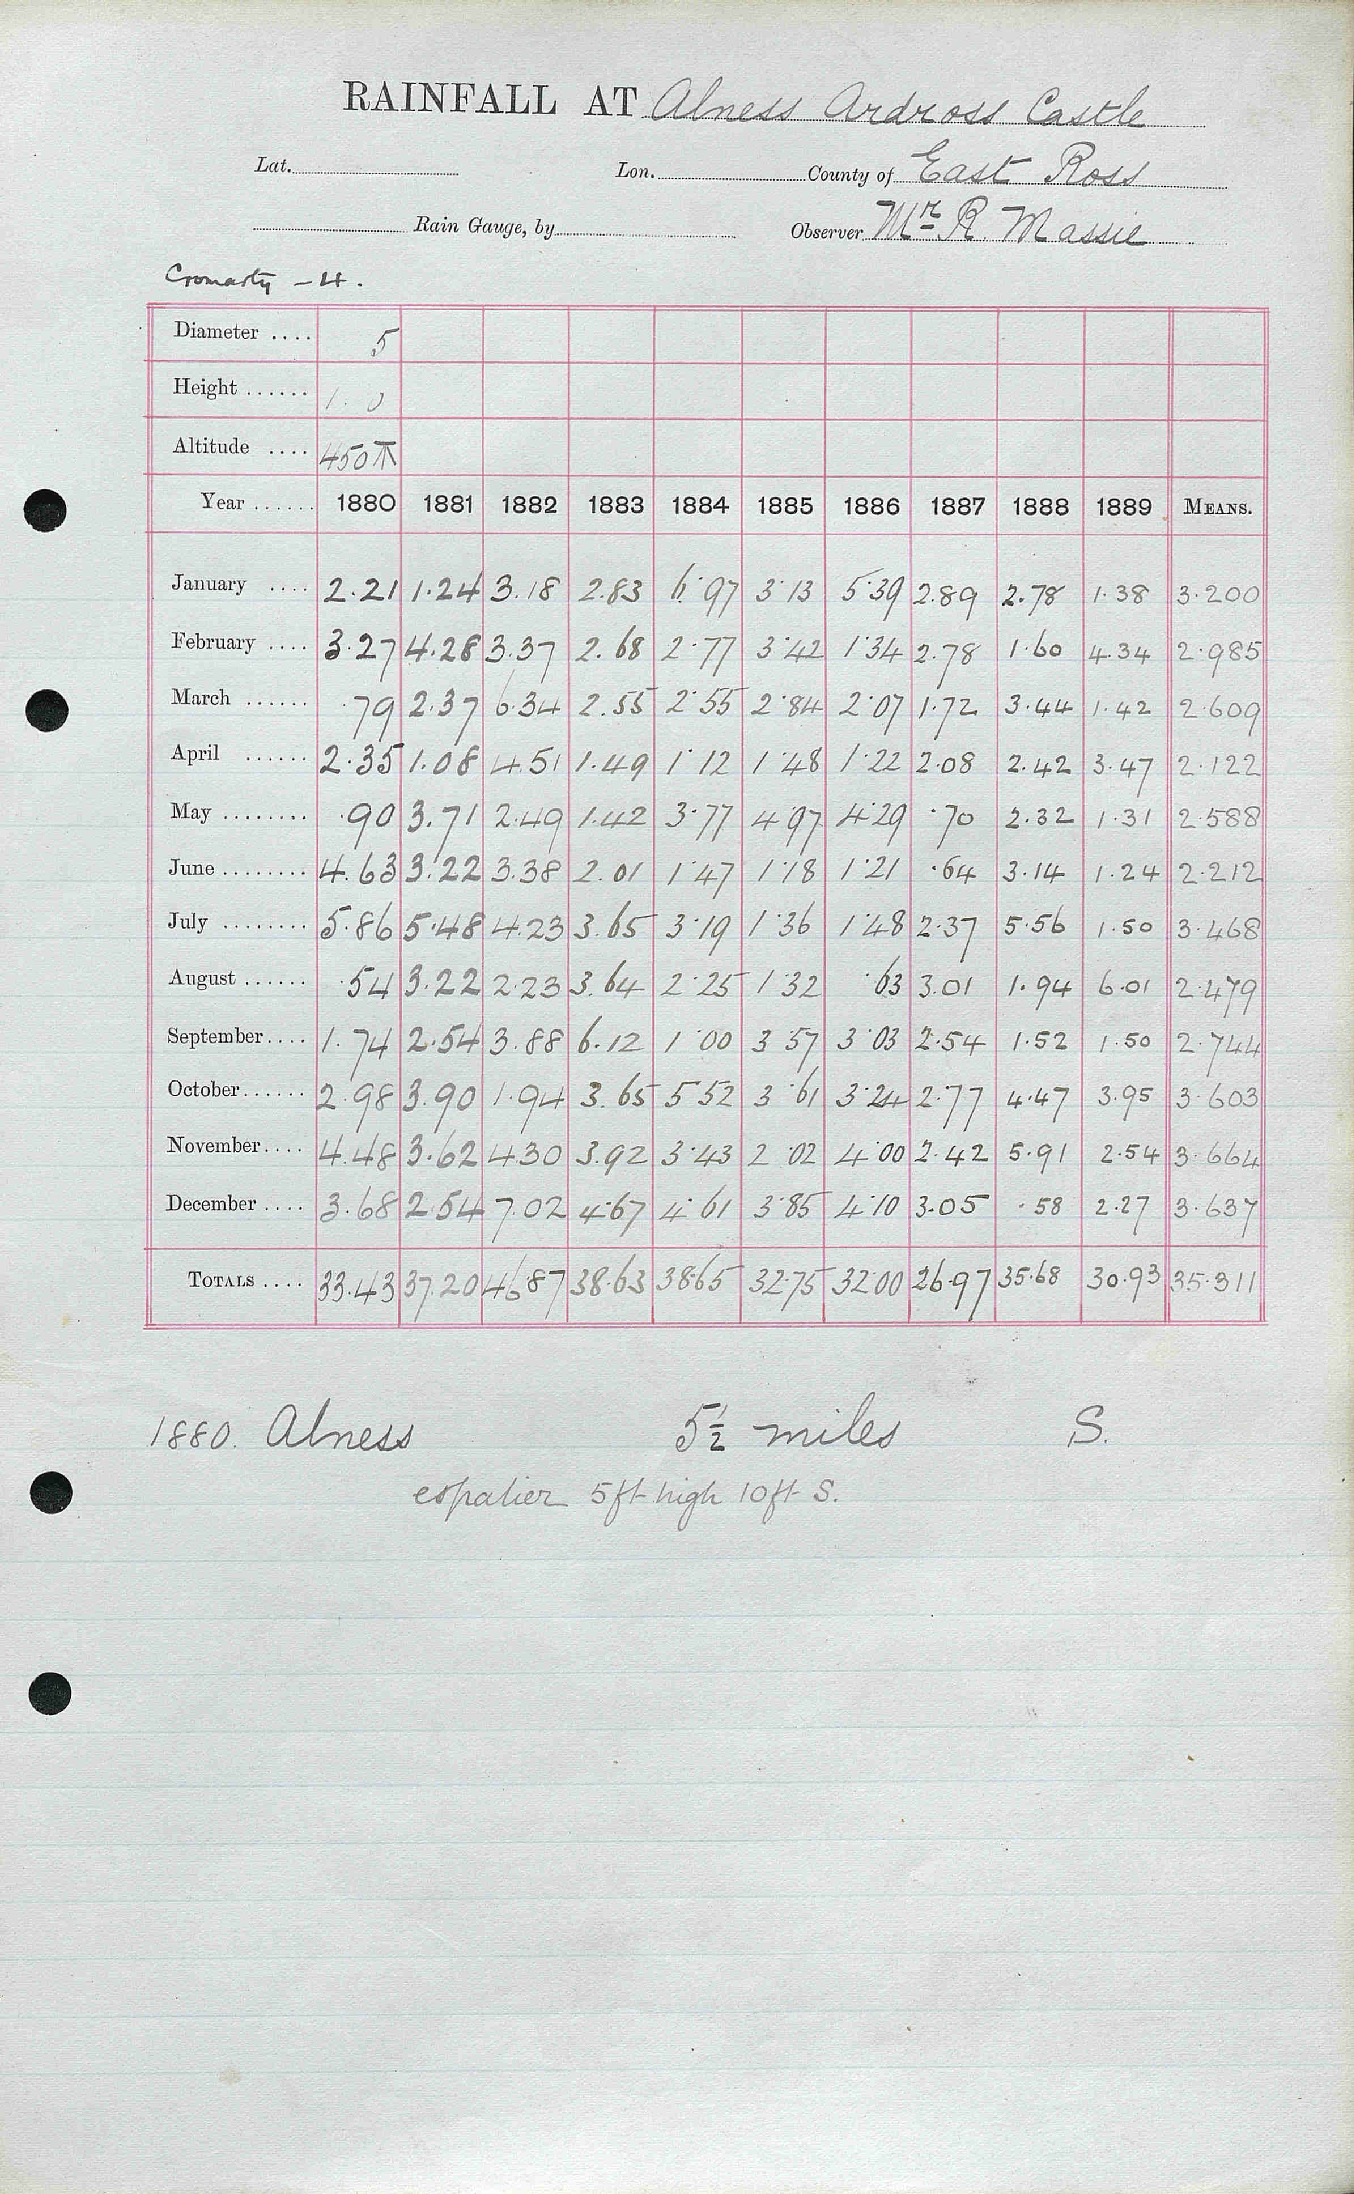 RAINFALL AT Alness Ardross Castle
Lat. Lon. County of East Ross
Rain Gauge, by Observer Mr R Massie
Cromarty - 4.
Diameter .... 5
Height ...... 1. 0
Altitude .... 450
Year ...... 1880 1881 1882 1883 1884 1885 1886 1887 1888 1889 MEANS.
January .... 2.21 1.24 3.18 2.83 6.97 3.13 5.39 2.89 2.78 1.38 3.200
February .... 3.27 4.28 3.37 2.68 2.77 3.42 1.34 2.78 1.60 4.34 2.985
March ...... .79 2.37 6.34 2.55 2.55 2.84 2.07 1.72 3.44 1.42 2.609
April ...... 2.35 1.08 4.51 1.49 1.12 1.48 1.22 2.08 2.42 3.47 2.122
May ........ .90 3.71 2.49 1.42 3.77 4.97 4.29 .70 2.32 1.31 2.588
June ........ 4.63 3.22 3.38 2.01 1.47 1.18 1.21 .64 3.14 1.24 2.212
July ........ 5.86 5.48 4.23 3.65 3.19 1.36 1.48 2.37 5.56 1.50 3.468
August ...... .54 3.22 2.23 3.64 2.25 1.32 .63 3.01 1.94 6.01 2.479
September.... 1.74 2.54 3.88 6.12 1.00 3.57 3.03 2.54 1.52 1.50 2.744
October...... 2.98 3.90 1.94 3.65 5.52 3.61 3.24 2.77 4.47 3.95 3.603
November.... 4.48 3.62 4.30 3.92 3.43 2.02 4.00 2.42 5.91 2.54 3.664
December .... 3.68 2.54 7.02 4.67 4.61 3.85 4.10 3.05 .58 2.27 3.637
TOTALS .... 33.43 37.20 46.87 38.63 38.65 32.75 32.00 26.97 35.68 30.93 35.311
1880. Alness 5½ miles S.
espalier 5ft high 10ft S.